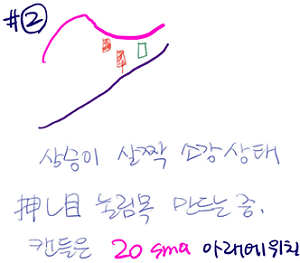 #②
상승이 살짝 소강상태
押し目 눌림목 만드는 중.
캔들은 20 sma 아래에위치